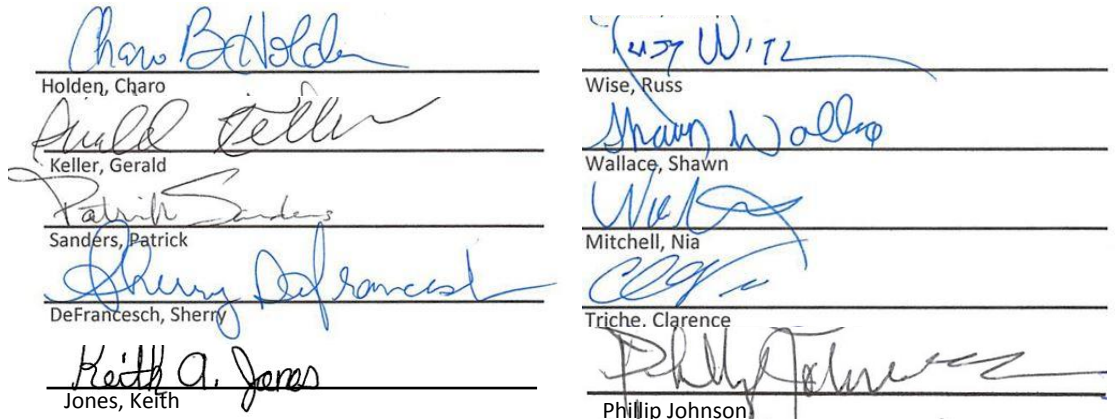 Charo B Holden
Holden, Charo
Gerald Keller
Keller, Gerald
Patrick Sanders
Sanders, Patrick
Sherry DeFrancesch
DeFrancesch, Sherry
Keith A. Jones
Jones, Keith
Russ Wise
Wise, Russ
Shawn Wallace
Wallace, Shawn
Mitchell, Nia
Triche, Clarence
Phillip Johnson
Phillip Johnson